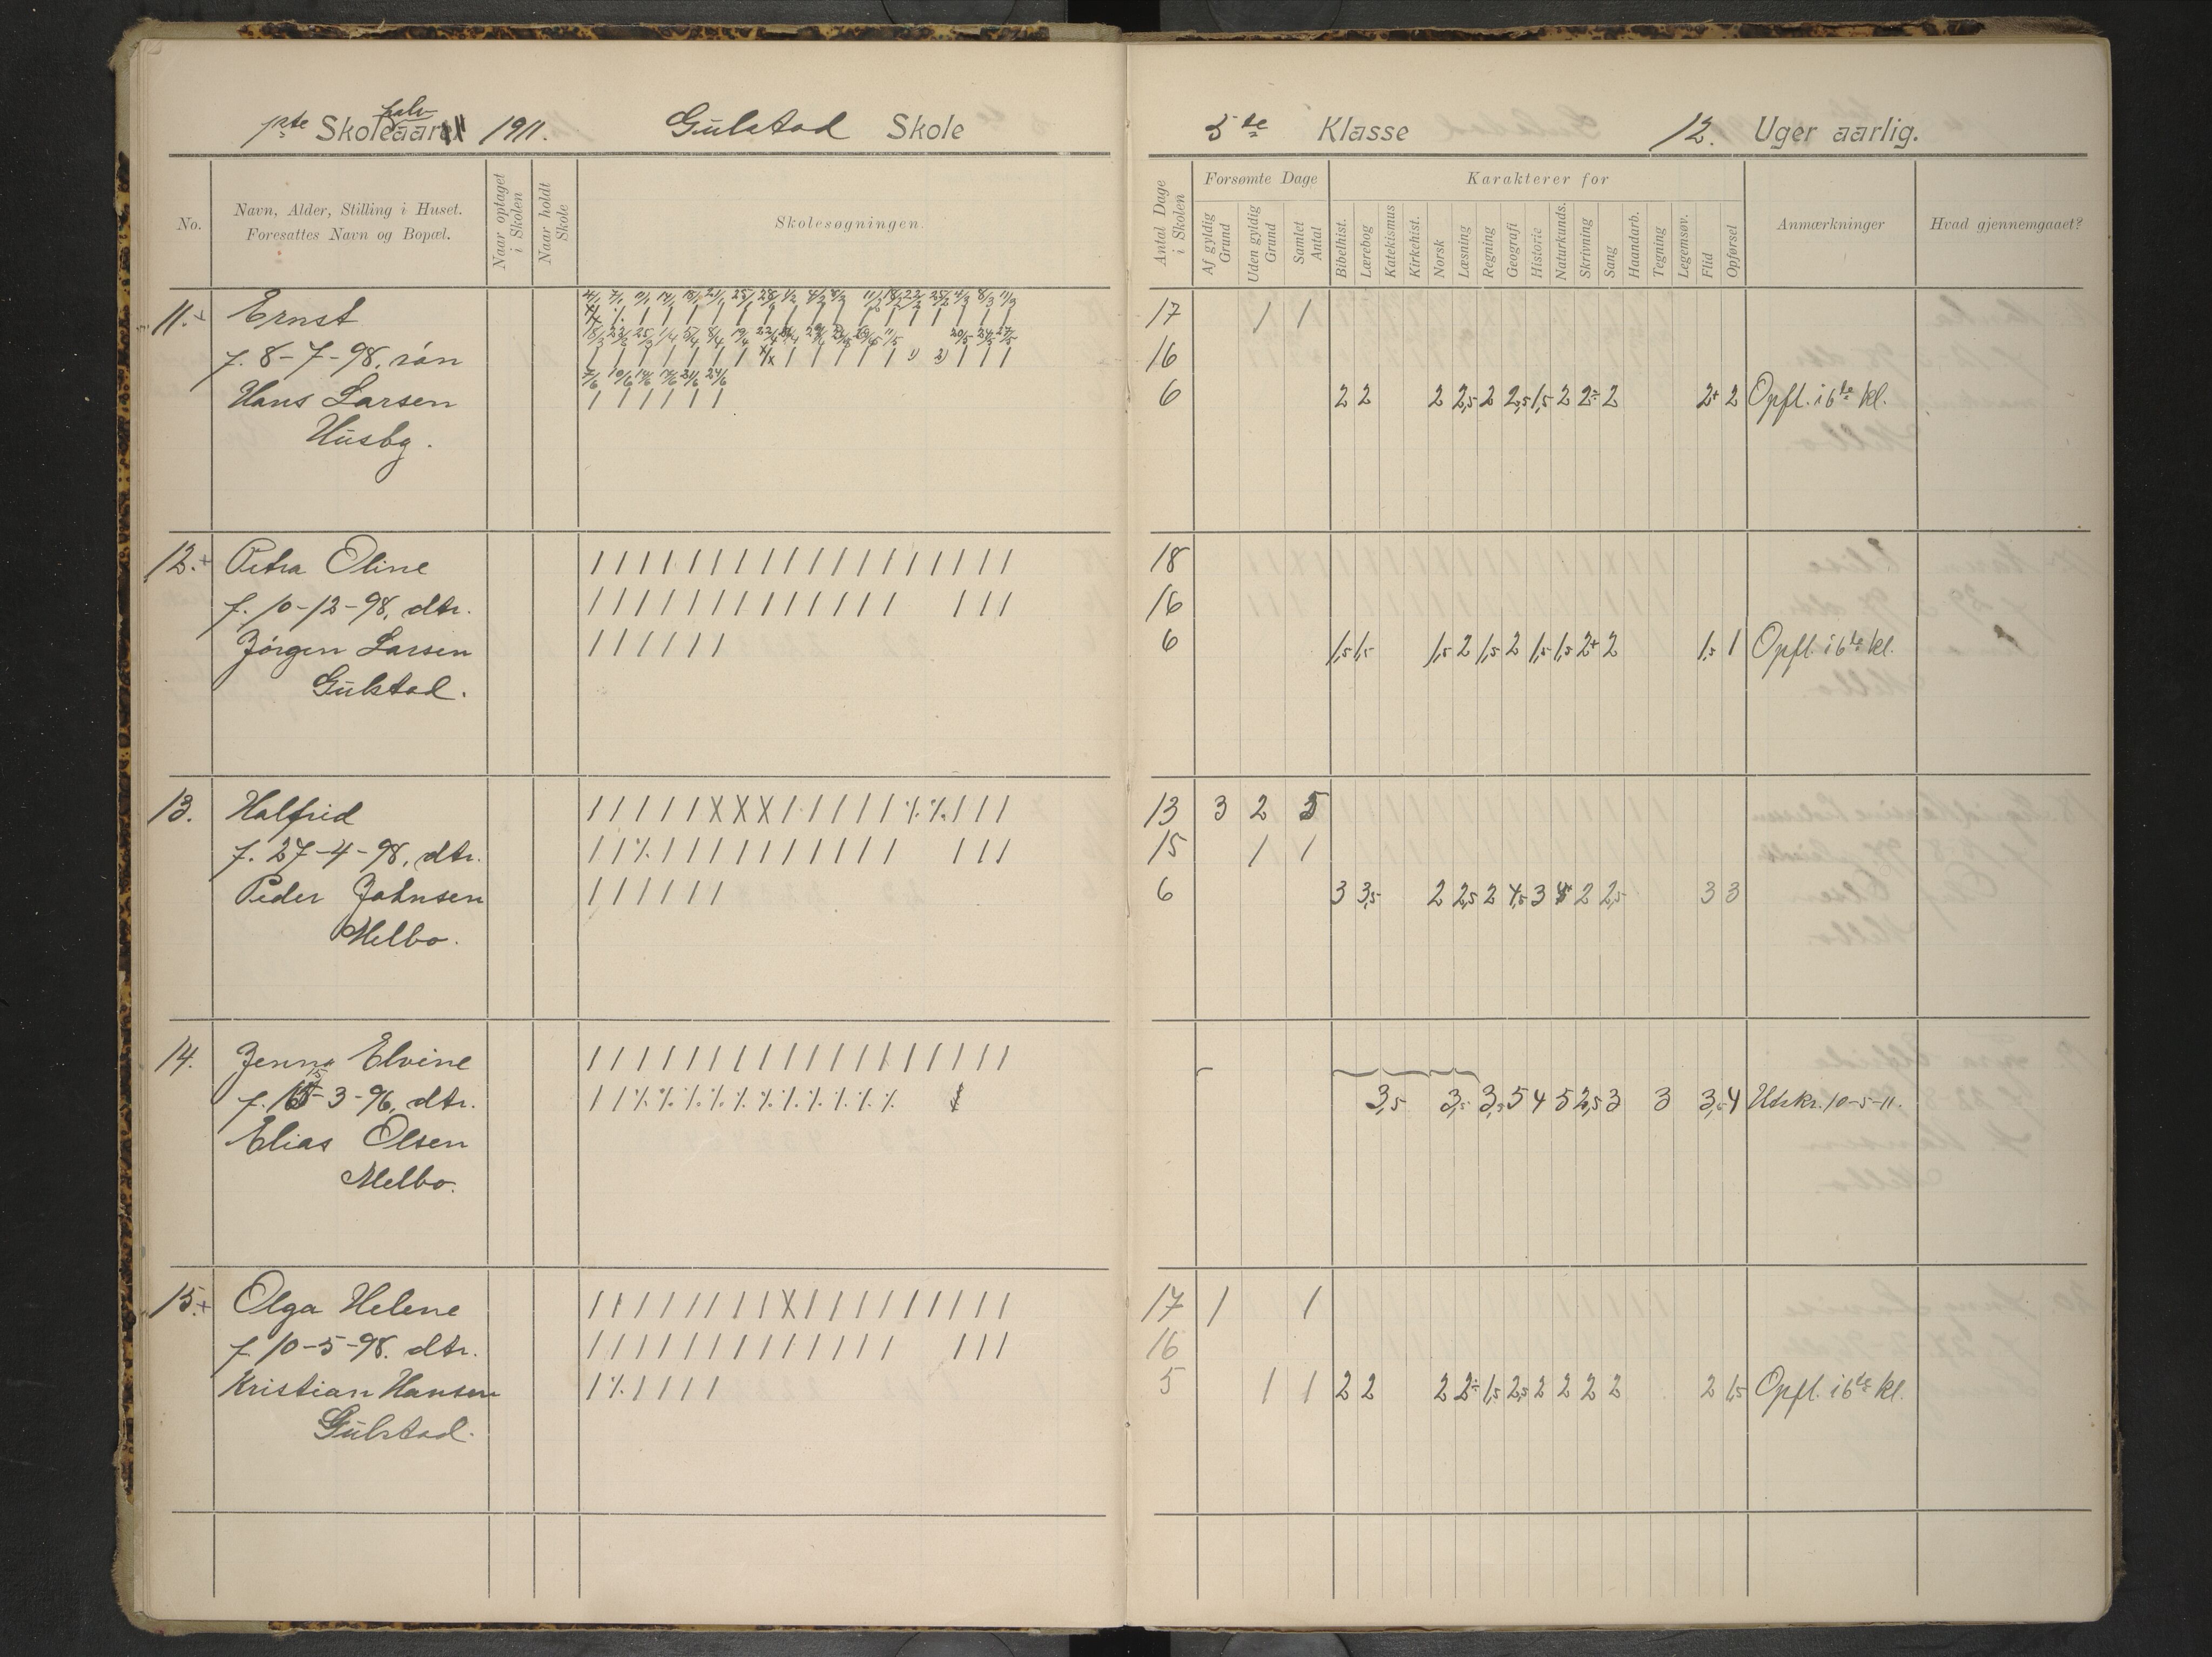 1ste Skolehalvaar 1911. Gulstad Skole
5te Klasse 12. Uger aarlig.
No.
Navn, Alder, Stilling i Huset.
Foresattes Navn og Bopæl.
Naar optaget i Skolen
Naar holdt Skole
Skolesøgningen.
Antal Dage i Skolen
Forsømte Dage
Af gyldig Grund
Uden gyldig Grund
Samlet Antal
Karakterer for
Bibelhist.
Lærebog
Katekismus
Kirkehist.
Norsk
Læsning
Regning
Geografi
Historie
Naturkunds.
Skrivning
Sang
Haandarb.
Tegning
Legemsøv.
Flid
Opførsel
Anmærkninger
Hvad gjennemgaaet?
11. + Ernst 17 1 1
f. 8-7-98, søn 16
Hans Larsen 6 2 2 2 2,5 2 2,5 1,5 2 2÷ 2 2+ 2 Opfl. i 6te kl.
Husby.
12. + Petra Oline 18
f. 10-12-98, dtr. 16
Jörgen Larsen 6 1,5 1,5 1,5 2 1,5 2 1,5 1,5 2+ 2 1,5 1 Opfl. i 6te kl.
Gulstad.
13. Halfrid 13 3 2 5
f. 27-4-98, dtr. 15 1 1
Peder Johnsen 6 3 3,5 2 2,5 2 4,5 3 4 2 2,5 3 3
Melbo.
14. Jenny Elvine
f. 15-3-96, dtr. 3,5 3,5 3,5 5 4 5 2,5 3 3 3,5 4 Utskr. 10-5-11.
Elias Olsen
Melbo.
15. + Olga Helene 17 1 1
f. 10-5-98. dtr. 16
Kristian Hansen 5 1 1 2 2 2 2÷ 1,5 2,5 2 2 2 2 2 1,5 Opfl. i 6te kl.
Gulstad.